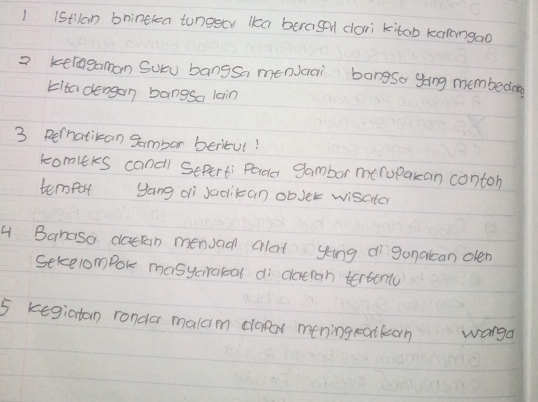 1 Istilah bhineka tunggal ika berasal dari kitab karangan
2 keragaman suku bangsa menjadi bangsa yang membedakan
kita dengan bangsa lain
3 Perhatikan gambar berikut!
komleks candi seperti pada gambar merupakan contoh
tempat yang di jadikan objek wisata
4 Bahasa daerah menjadi alat yang di gunakan oleh
sekelompok masyarakat di daerah tertentu
5 kegiatan ronda malam dapat meningkatkan warga